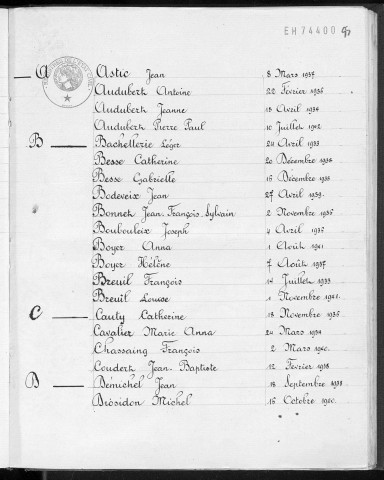 EH 74400
A Astic Jean 8 Mars 1937
Audubert Antoine 22 Février 1936
Audubert Jeanne 13 Avril 1934
Audubert Pierre Paul 10 Juillet 1942
B Bachellerie Léger 24 Avril 1933
Besse Catherine 20 Décembre 1938
Besse Gabrielle 15 Décembre 1935
Bodeveix Jean 27 Avril 1939.
Bonnet Jean-François-Sylvain 2 Novembre 1936
Boubouleix Joseph 4 Avril 1936
Boyer Anna 1 Août 1941
Boyer Hélène 7 Août 1937
Breuil François 14 Juillet 1933
Breuil Louise 1 Novembre 1942.
C Cauty Catherine 18 Novembre 1936
Cavalier Marie Anna 24 Mars 1934
Chassaing François 2 Mars 1940.
Coudert Jean-Baptiste 12 Février 1938
D Demichel Jean 18 Septembre 1938
Diosidon Michel 15 Octobre 1940.